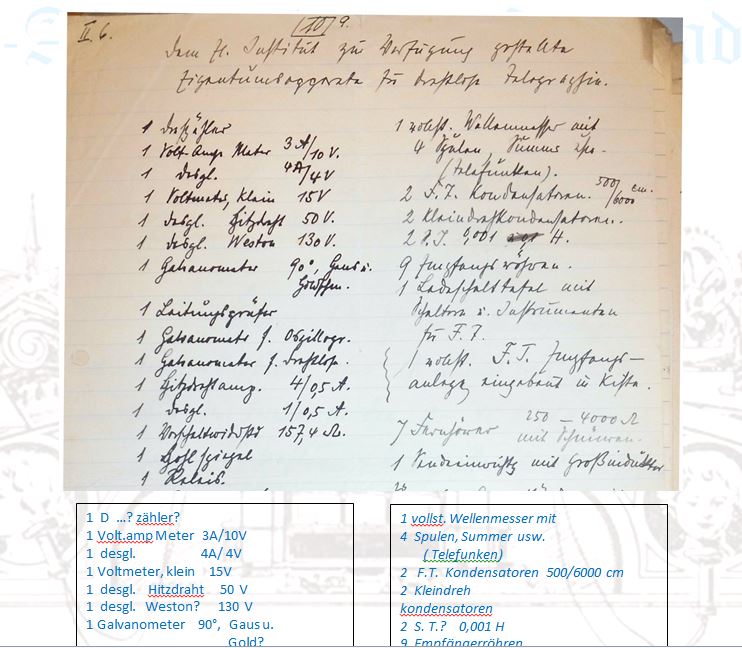 II.6.
10 9.
Dem Institut zu Verfügung gestellte
Eigentumsapparate für drahtlose Telegraphie.
1
1 Volt. Amp. Meter 3A/10V.
1 desgl. 4A/4V
1 Voltmeter, klein 15V
1 desgl. Hitzdraht 50V.
1 desgl. Weston 130V.
1 Galvanometer 90°, Gans u.
Goldschm.
1 Leitungsprüfer
1 Galvanometer f. Oszillogr.
1 Galvanometer f. drahtlose.
1 Hitzdrahtamp. 4/0,5 A.
1 desgl. 1/0,5 A.
1 Vorschaltwidstd 157,4 Ω.
1 Hohlspiegel
1 Relais.
1 vollst. Wellenmesser mit
4 Spulen, Summer usw.
(Telefunken).
2 F.T. Kondensatoren. 500/6000 cm.
2 Kleindrehkondensatoren.
2 S.T. 0,001 H.
9 Empfangsröhren.
1 Ladeschalttafel mit
Schaltern u. Instrumenten
für F.T.
1 vollst. F.T. Empfangs-
anlage eingebaut in Kiste.
7 Fernhörer 250 – 4000 Ω
mit Schnüren.
1 mit
1 D ...? zähler?
1 Volt.amp Meter 3A/10V
1 desgl. 4A/ 4V
1 Voltmeter, klein 15V
1 desgl. Hitzdraht 50 V
1 desgl. Weston? 130 V
1 Galvanometer 90°, Gaus u.
Gold?
1 vollst. Wellenmesser mit
4 Spulen, Summer usw.
( Telefunken)
2 F.T. Kondensatoren 500/6000 cm
2 Kleindreh
kondensatoren
2 S. T.? 0,001 H
9 Empfängerröhren